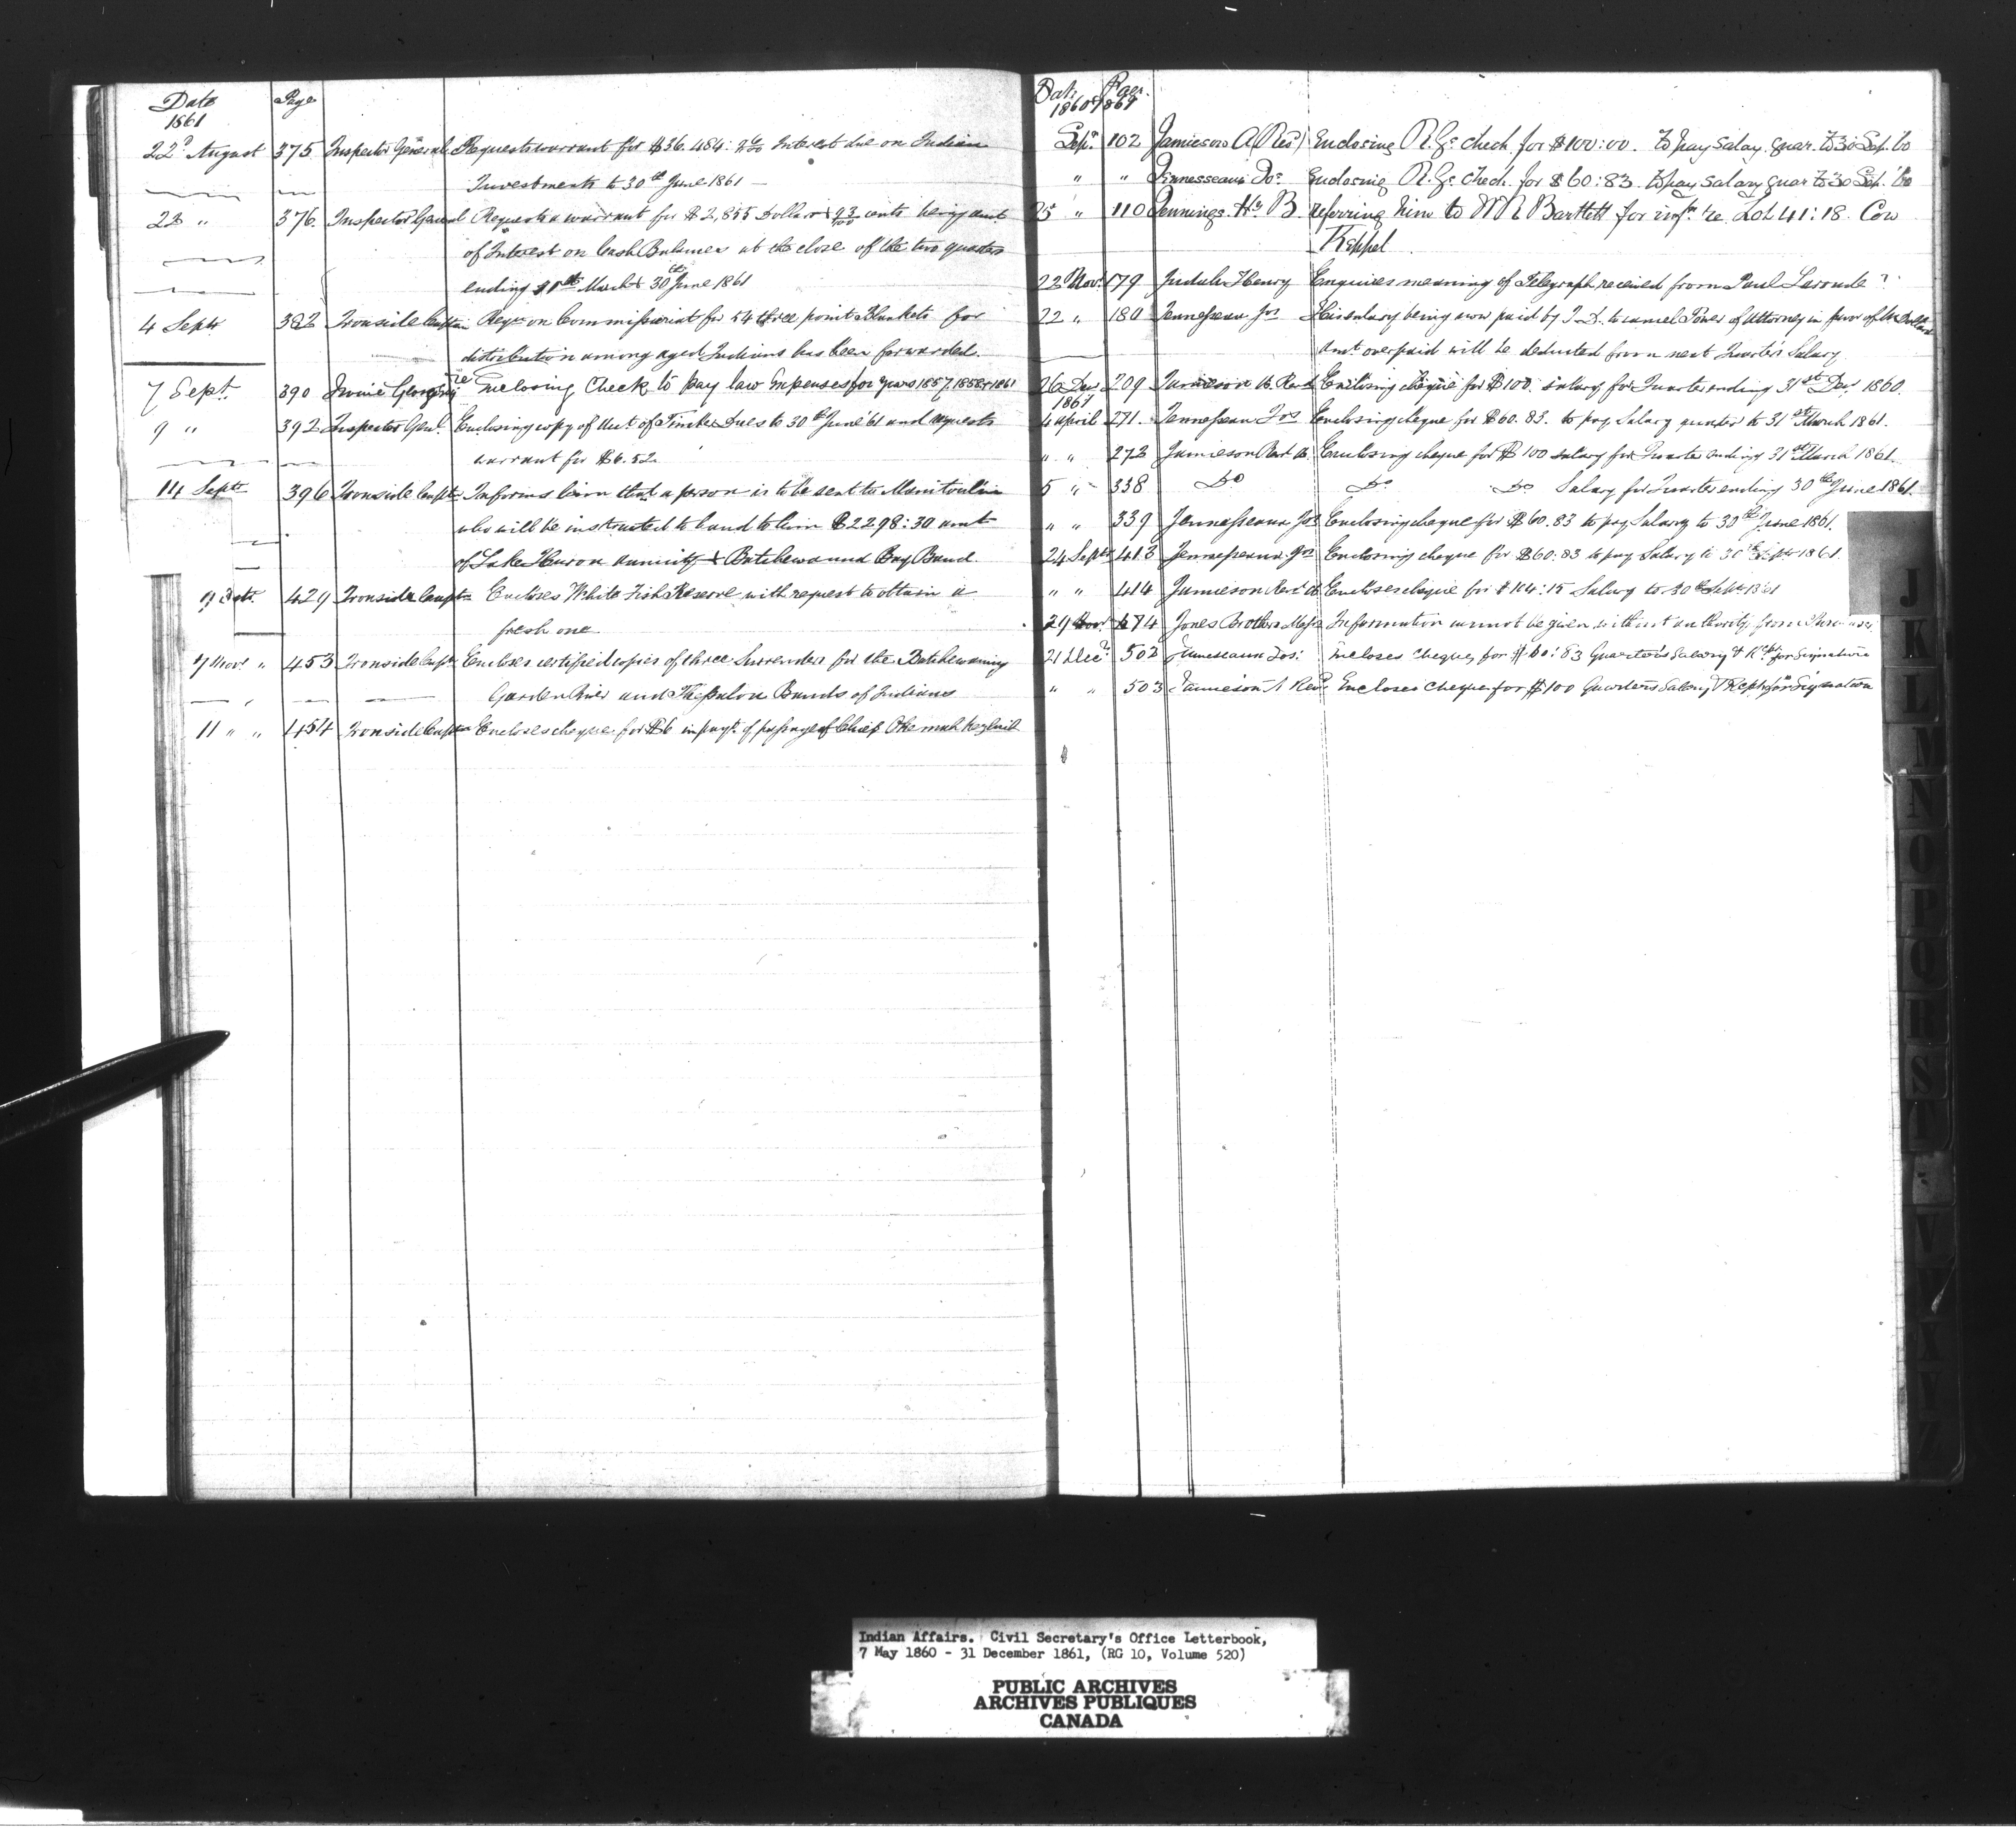 Date Page
1861
22d August 375 Inspector General Requests warrant for $36.484: Interest due on Indian
Investments to 30th June 1861 —
23 " 376. Inspector General Requests a warrant for $2,855 Dollars 93/100 cents being amt
of Interest on Cash Balances at the close of the two quarters
ending 31st March & 30th June 1861
4 Septr 382 Ironside Captain Reqn on Commissariat for 54 three point Blankets for
distribution among aged Indians has been forwarded.
7 Sept. 390 George Enclosing Check to pay law Expenses for years 1857, 1858 & 1861
9 " 392 Inspector Genl. Enclosing copy of Acct of Timber Dues to 30th June '61 and requests
warrant for $6.52
14 Septr 396 Ironside Captn Informs him that a person is to be sent to Manitoulin
who will be instructed to hand to him $2298:30 amt
of Lake Huron Annuity & Batchewaund Bay Band.
9 Octr. 429 Ironside Captn Encloses White Fish Reserve with request to obtain a
fresh one
7 Novr " 453 Ironside Captn Encloses certified copies of three Surrenders for the Batchewaning
Garden River and Thessalon Bands of Indians
11 " " 454 Ironside Captn Encloses cheque for $6 in payt. of passage of Chief
Date Page.
1860 1861
Sepr. 102 Jamieson A (Revd) Enclosing R. Gs. check for $100:00. to pay Salary quar. to 30 Sep. '60
" " Jennesseaux Jos. Enclosing R. Gs. Check for $60:83 to pay Salary quar to 30 Sep. '60
25 " 110 Jennings Hy B. referring him to W R Bartlett for infn. re Lot 41:18. Con
Keppel
22 Novr. 179 Judah Henry Enquires meaning of Telegraph received from Paul Laronde?
22 " 180 Jennesseaux Jos His salary being now paid by I. D. to cancel Power of Attorney in favor of
Amt overpaid will be deducted from next Quarter's Salary
26 Decr 209 Jamieson A. Revd Enclosing cheque for $100. salary for Quarter ending 31st Decr 1860.
1861
4 April 271. Jennesseaux Jos Enclosing cheque for $60.83. to pay Salary quarter to 31st March 1861.
" " 272 Jamieson Revd A. Enclosing cheque for $100 salary for Quarter ending 31st March 1861
5 " 338 Do Do Do Salary for Quarter ending 30th June 1861.
" " 339 Jennesseaux Jos Enclosing cheque for $60.83 to pay Salary to 30th June 1861.
24 Septr 413 Jennesseaux Jos Enclosing cheque for $60:83 to pay Salary to 30th Septr 1861.
" " 414 Jamieson Revd A Encloses cheque for $104:15 Salary to 30th Septr 1861
29 Novr. 474 Jones Brothers Messrs Information cannot be given without authority from
21 Decr. 502 Jennesseaux Jos. Encloses Cheque for $60:83 Quarter's Salary & Rcpt for Signature
" " 503 Jamieson A Revd. Encloses Cheque for $100 Quarters Salary & Rept for Signature
J
K
L
M
N
O
P
Q
R
S
T
V
W
X
Y
Z
Indian Affairs. Civil Secretary's Office Letterbook,
7 May 1860 - 31 December 1861, (RG 10, Volume 520)
PUBLIC ARCHIVES
ARCHIVES PUBLIQUES
CANADA